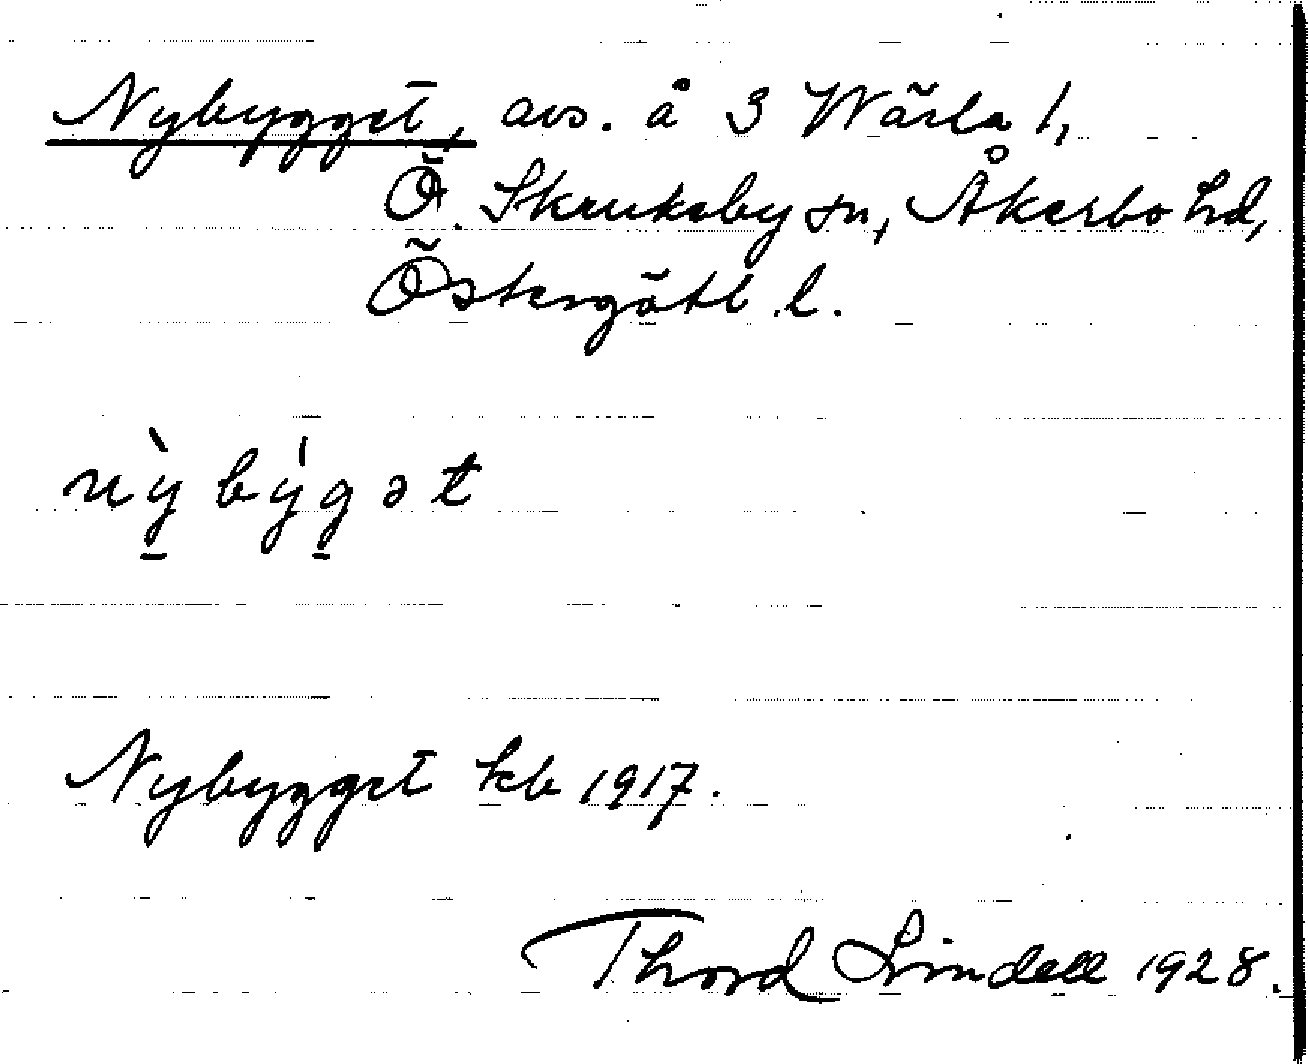 Nybygget, avs. å 3 Wärla 1,
Ö. Skrukeby sn, Åkerbo hd,
Östergötl. l.
nỳ̠ býg̠ət
Nybygget kb 1917.
Thord Lindell 1928.